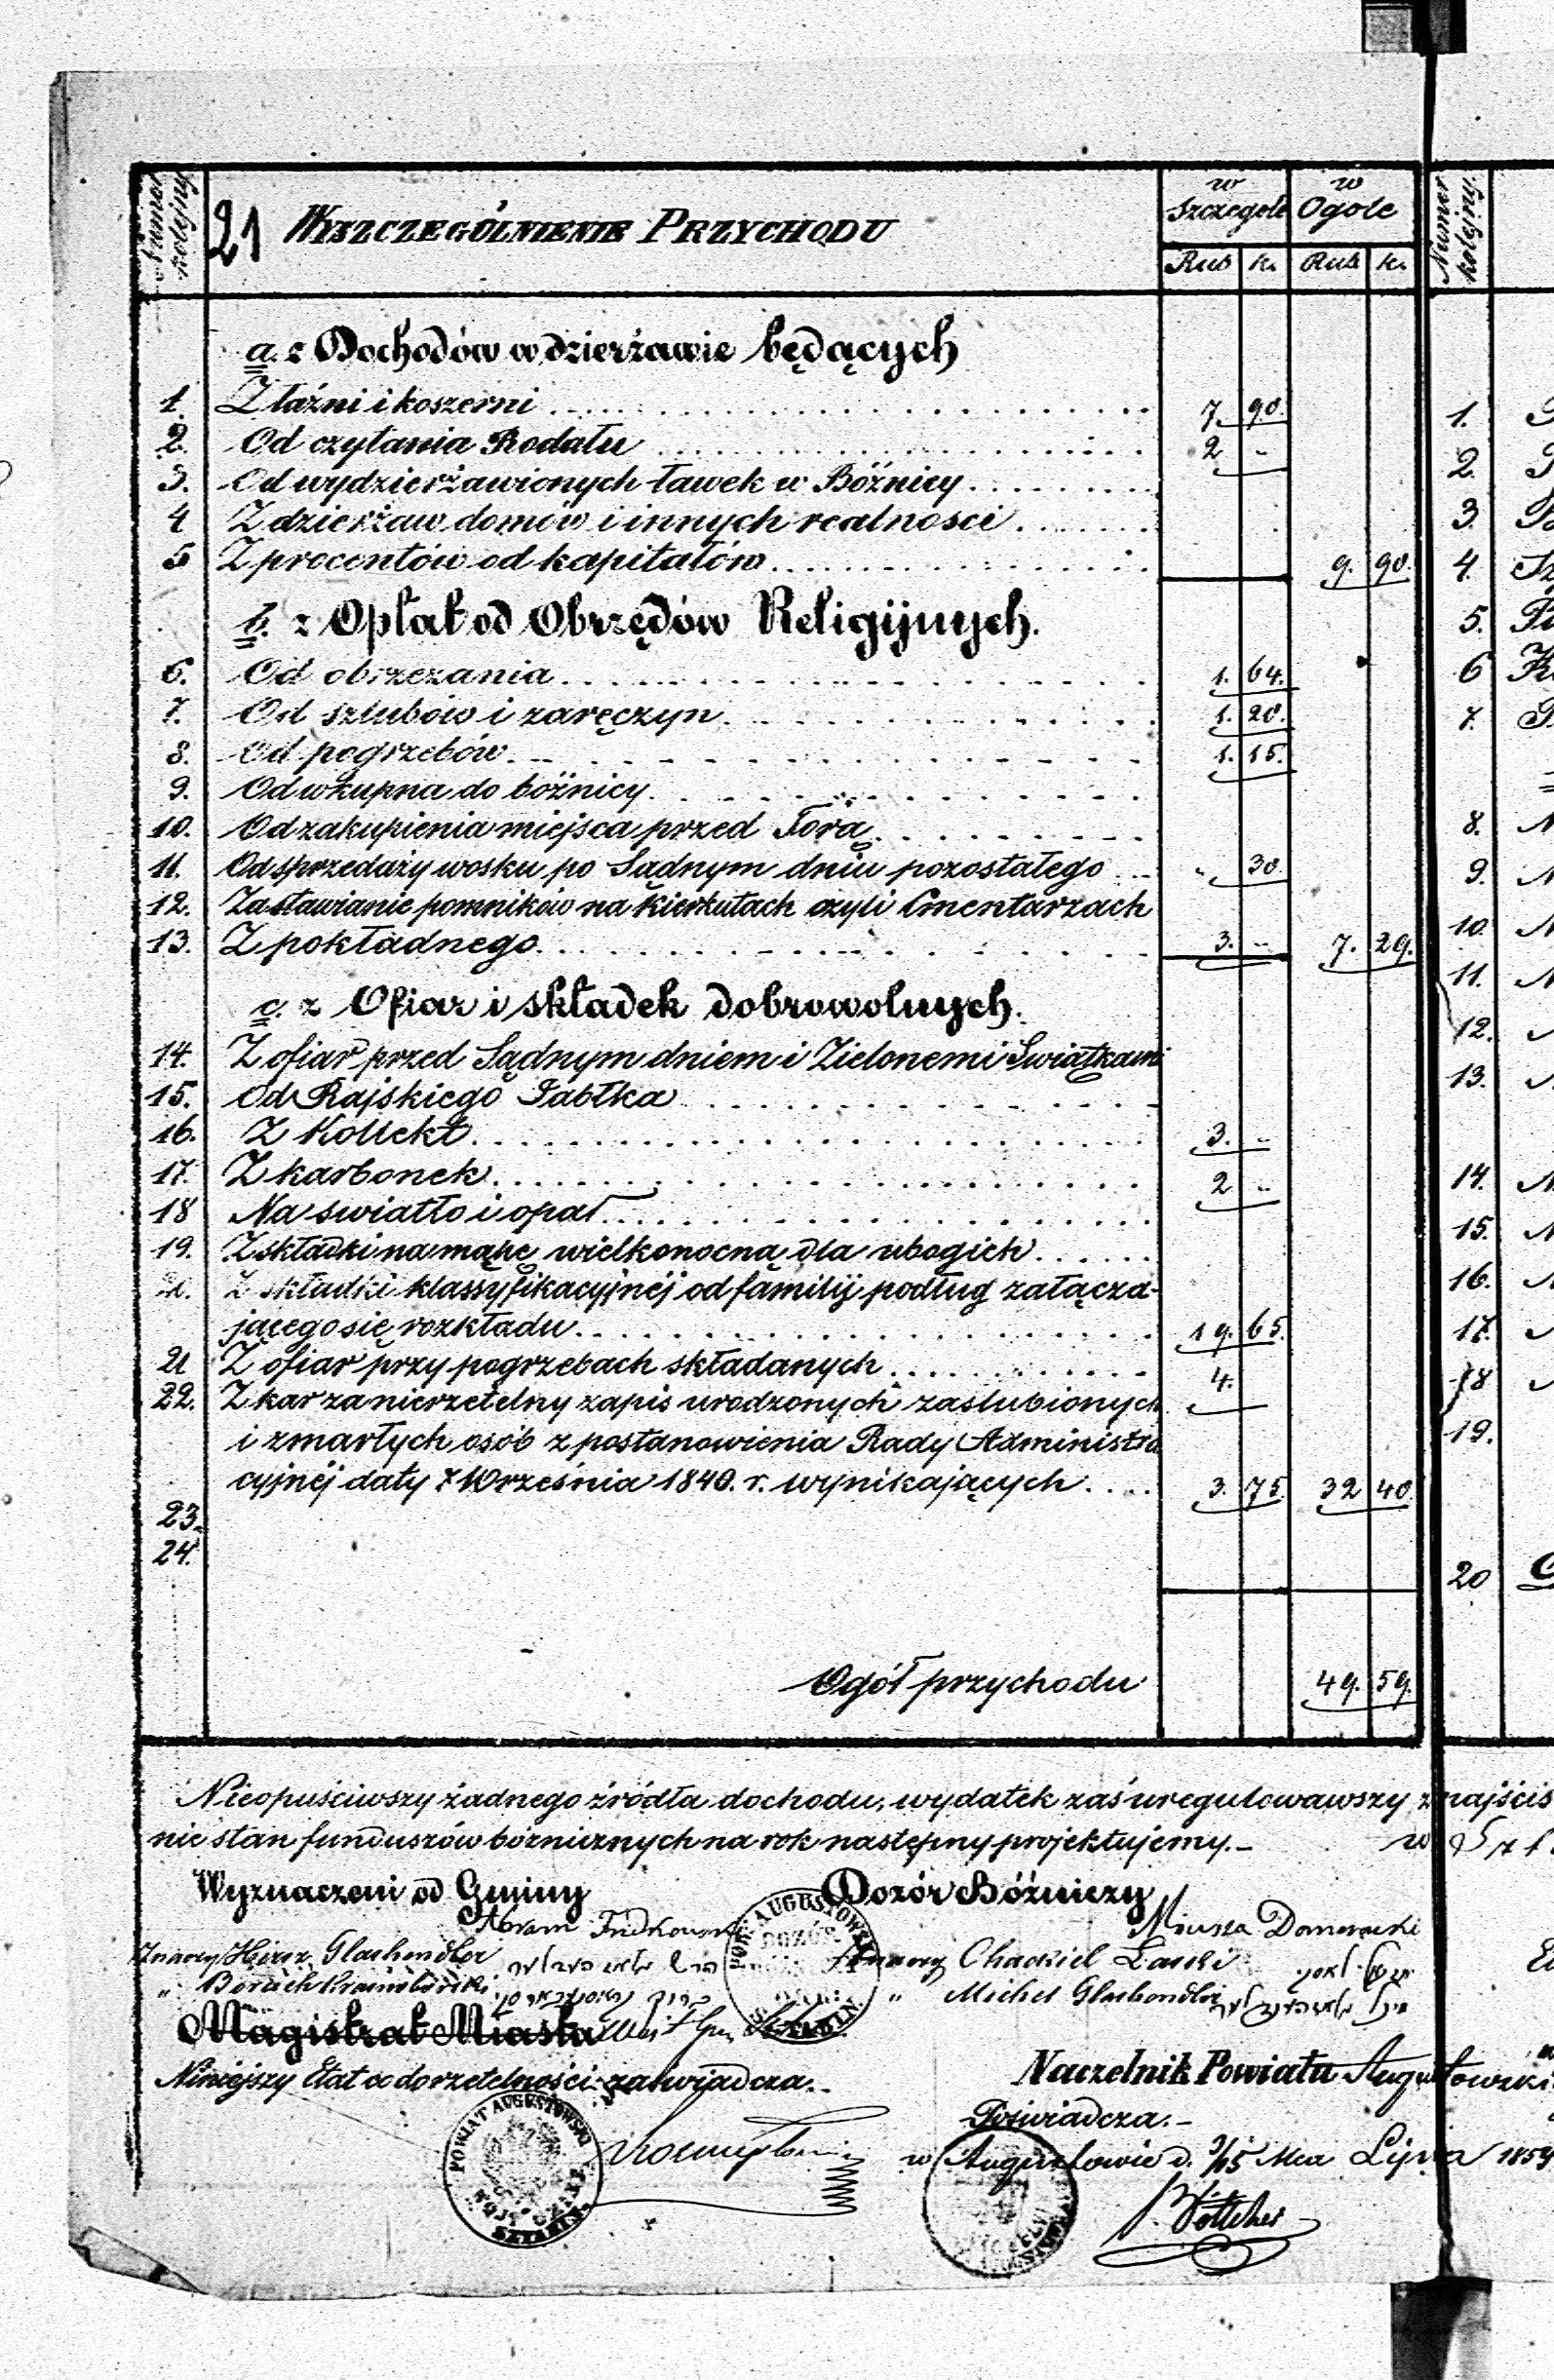 Numer kolejny
21 WYSZCZEGÓLNIENIE PRZYCHODU
w Szczegole
w Ogole
Rub k. Rub k.
Numer kolejny.
a. z Dochodów w dzierżawie będących
1. Z łaźni i koszerni 7. 90.
2. Od czytania Rodału 2 -
3. Od wydzierżawionych ławek w Bóżnicy
4 Z dzierżaw domów i innych realności
5 Z procentów od kapitałów 9. 90.
b. z Opłat od Obrzędów Religijnych.
6. Od obrzezania 1. 64.
7. Od szlubów i zaręczyn 1. 20.
8. Od pogrzebów 1. 15.
9. Od wkupna do bóżnicy
10. Od zakupienia miejsca przed Torą
11. Od sprzedaży wosku po Sądnym dniu pozostałego " 30.
12. Za stawianie pomników na kierkutach czyli Cmentarzach
13. Z pokładnego 3. " 7. 29.
c. z Ofiar i składek dobrowolnych.
14. Z ofiar przed Sądnym dniem i Zielonemi Swiątkami
15. Od Rajskiego Jabłka
16. Z Kollekt 3. "
17. Z karbonek 2 "
18 Na swiatło i opał
19. Z składki na mąkę wielkonocną dla ubogich
20. Z składki klassyfikacyjnéj od familij podług załącza-
jącego się rozkładu 19. 65.
21 Z ofiar przy pogrzebach składanych 4.
22. Z kar za nierzetelny zapis urodzonych zaslubionych
i zmarłych osób z postanowienia Rady Administra
cyjnéj daty 7 Września 1840. r. wynikających 3. 75. 32 40.
23.
24.
Ogół przychodu 49. 59.
1.
2.
3.
4.
5.
6
7.
8.
9.
10.
11.
12.
13.
14.
15.
16.
17.
18
19.
20
Nieopuściwszy żadnego źródła dochodu, wydatek zaś uregulowawszy z najściś
nie stan funduszów bóżnicznych na rok następny projektujemy.- w
Wyznaczeni od Gminy Dozór Bóżniczy
Abram
Hirsz Glashendler
Chackiel Łaski
" Boruch
" Michel Glashendler
Magistrat Miasta
Niniejszy Etat co do rzetelności zaświadcza.-
POW: AUGUSTOWSKI DOZÓR
POWIAT AUGUSTOWSKI WOJT GMINY SZTABIN
Naczelnik Powiatu Augustowski
Poświadcza.-
w Augustowie d. 3/15 Mca Lipca 1859
Böttcher